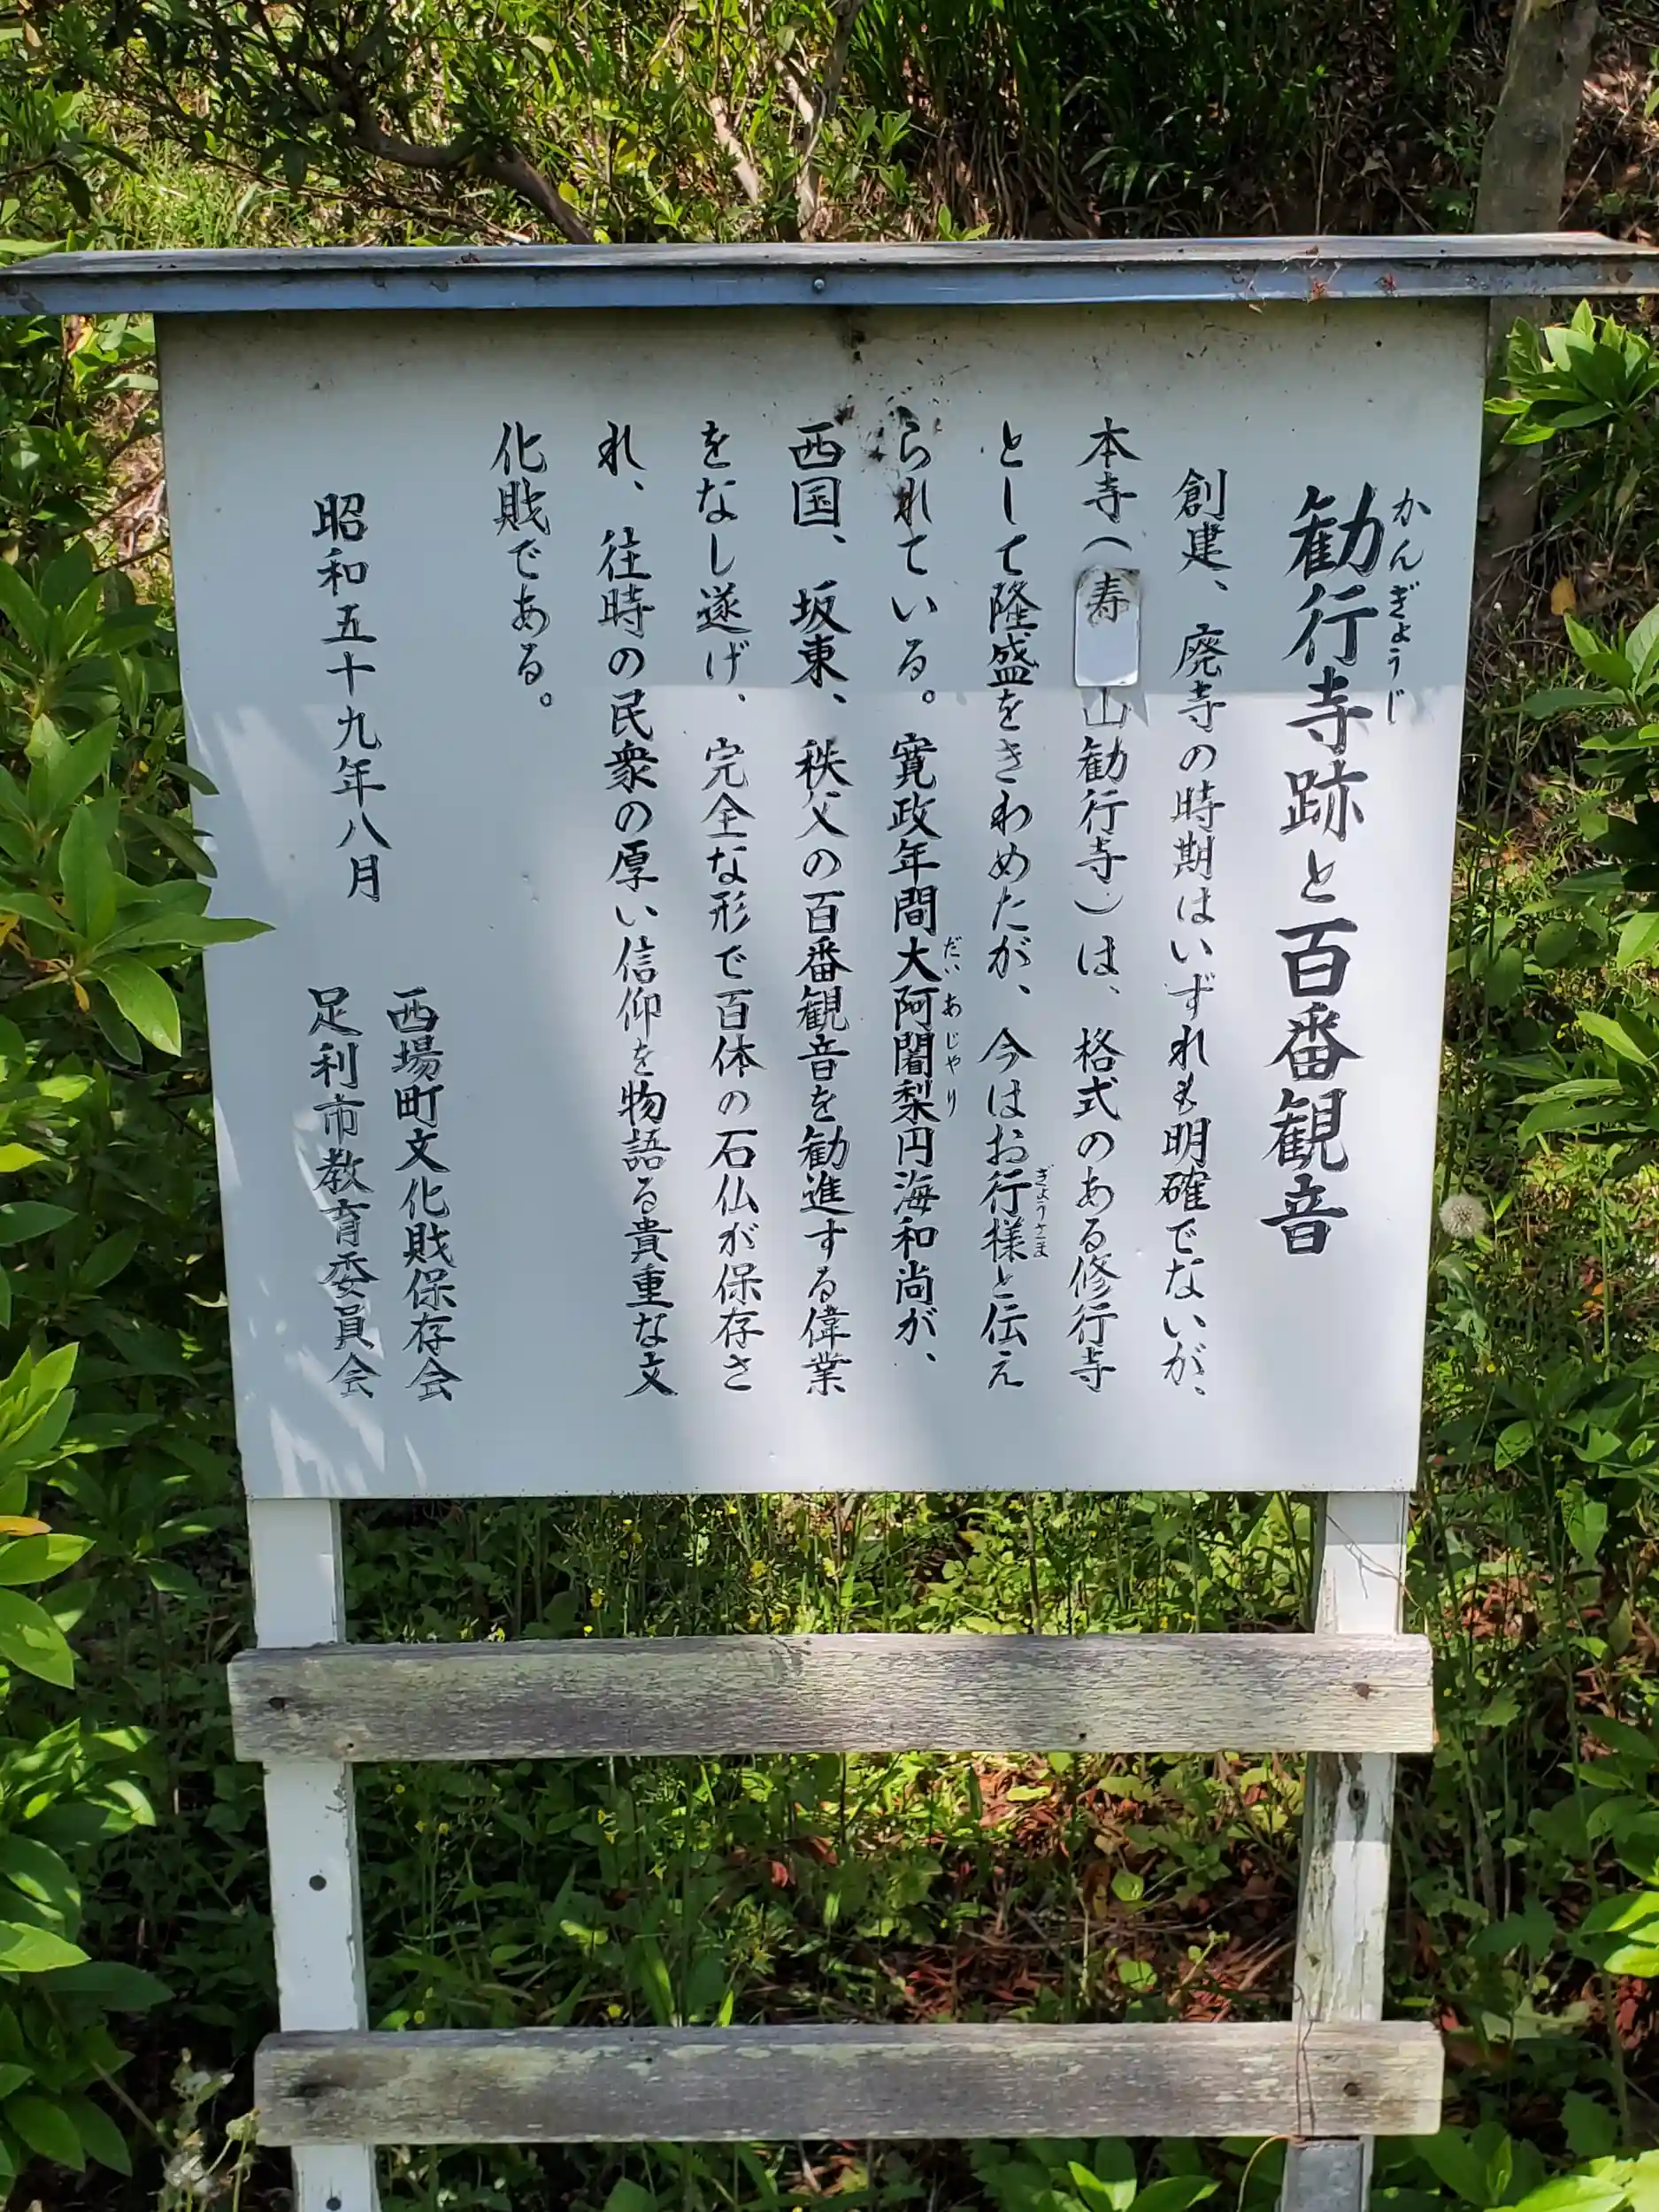 勧行寺跡と百番観音
かんぎょうじ
創建、廃寺の時期はいずれも明確でないが、
本寺(寿 山勧行寺)は、格式のある修行寺
として隆盛をきわめたが、今はお行様と伝え
ぎょうさま
られている。寛政年間大阿闍梨円海和尚が、
だいあじゃり
西国、坂東、秩父の百番観音を勧進する偉業
をなし遂げ、完全な形で百体の石仏が保存さ
れ、往時の民衆の厚い信仰を物語る貴重な文
化財である。
昭和五十九年八月
西場町文化財保存会
足利市教育委員会